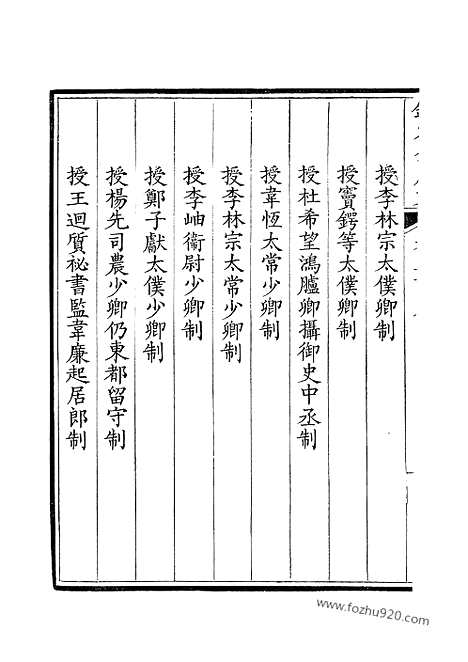 授李林宗太僕卿制
授竇鍔等太僕卿制
授杜希望鴻臚卿攝御史中丞制
授韋恆太常少卿制
授李林宗太常少卿制
授李岫衞尉少卿制
授鄭子獻太僕少卿制
授楊先司農少卿仍東都留守制
授王迴質祕書監韋廉起居郎制
www.fozhu920.com